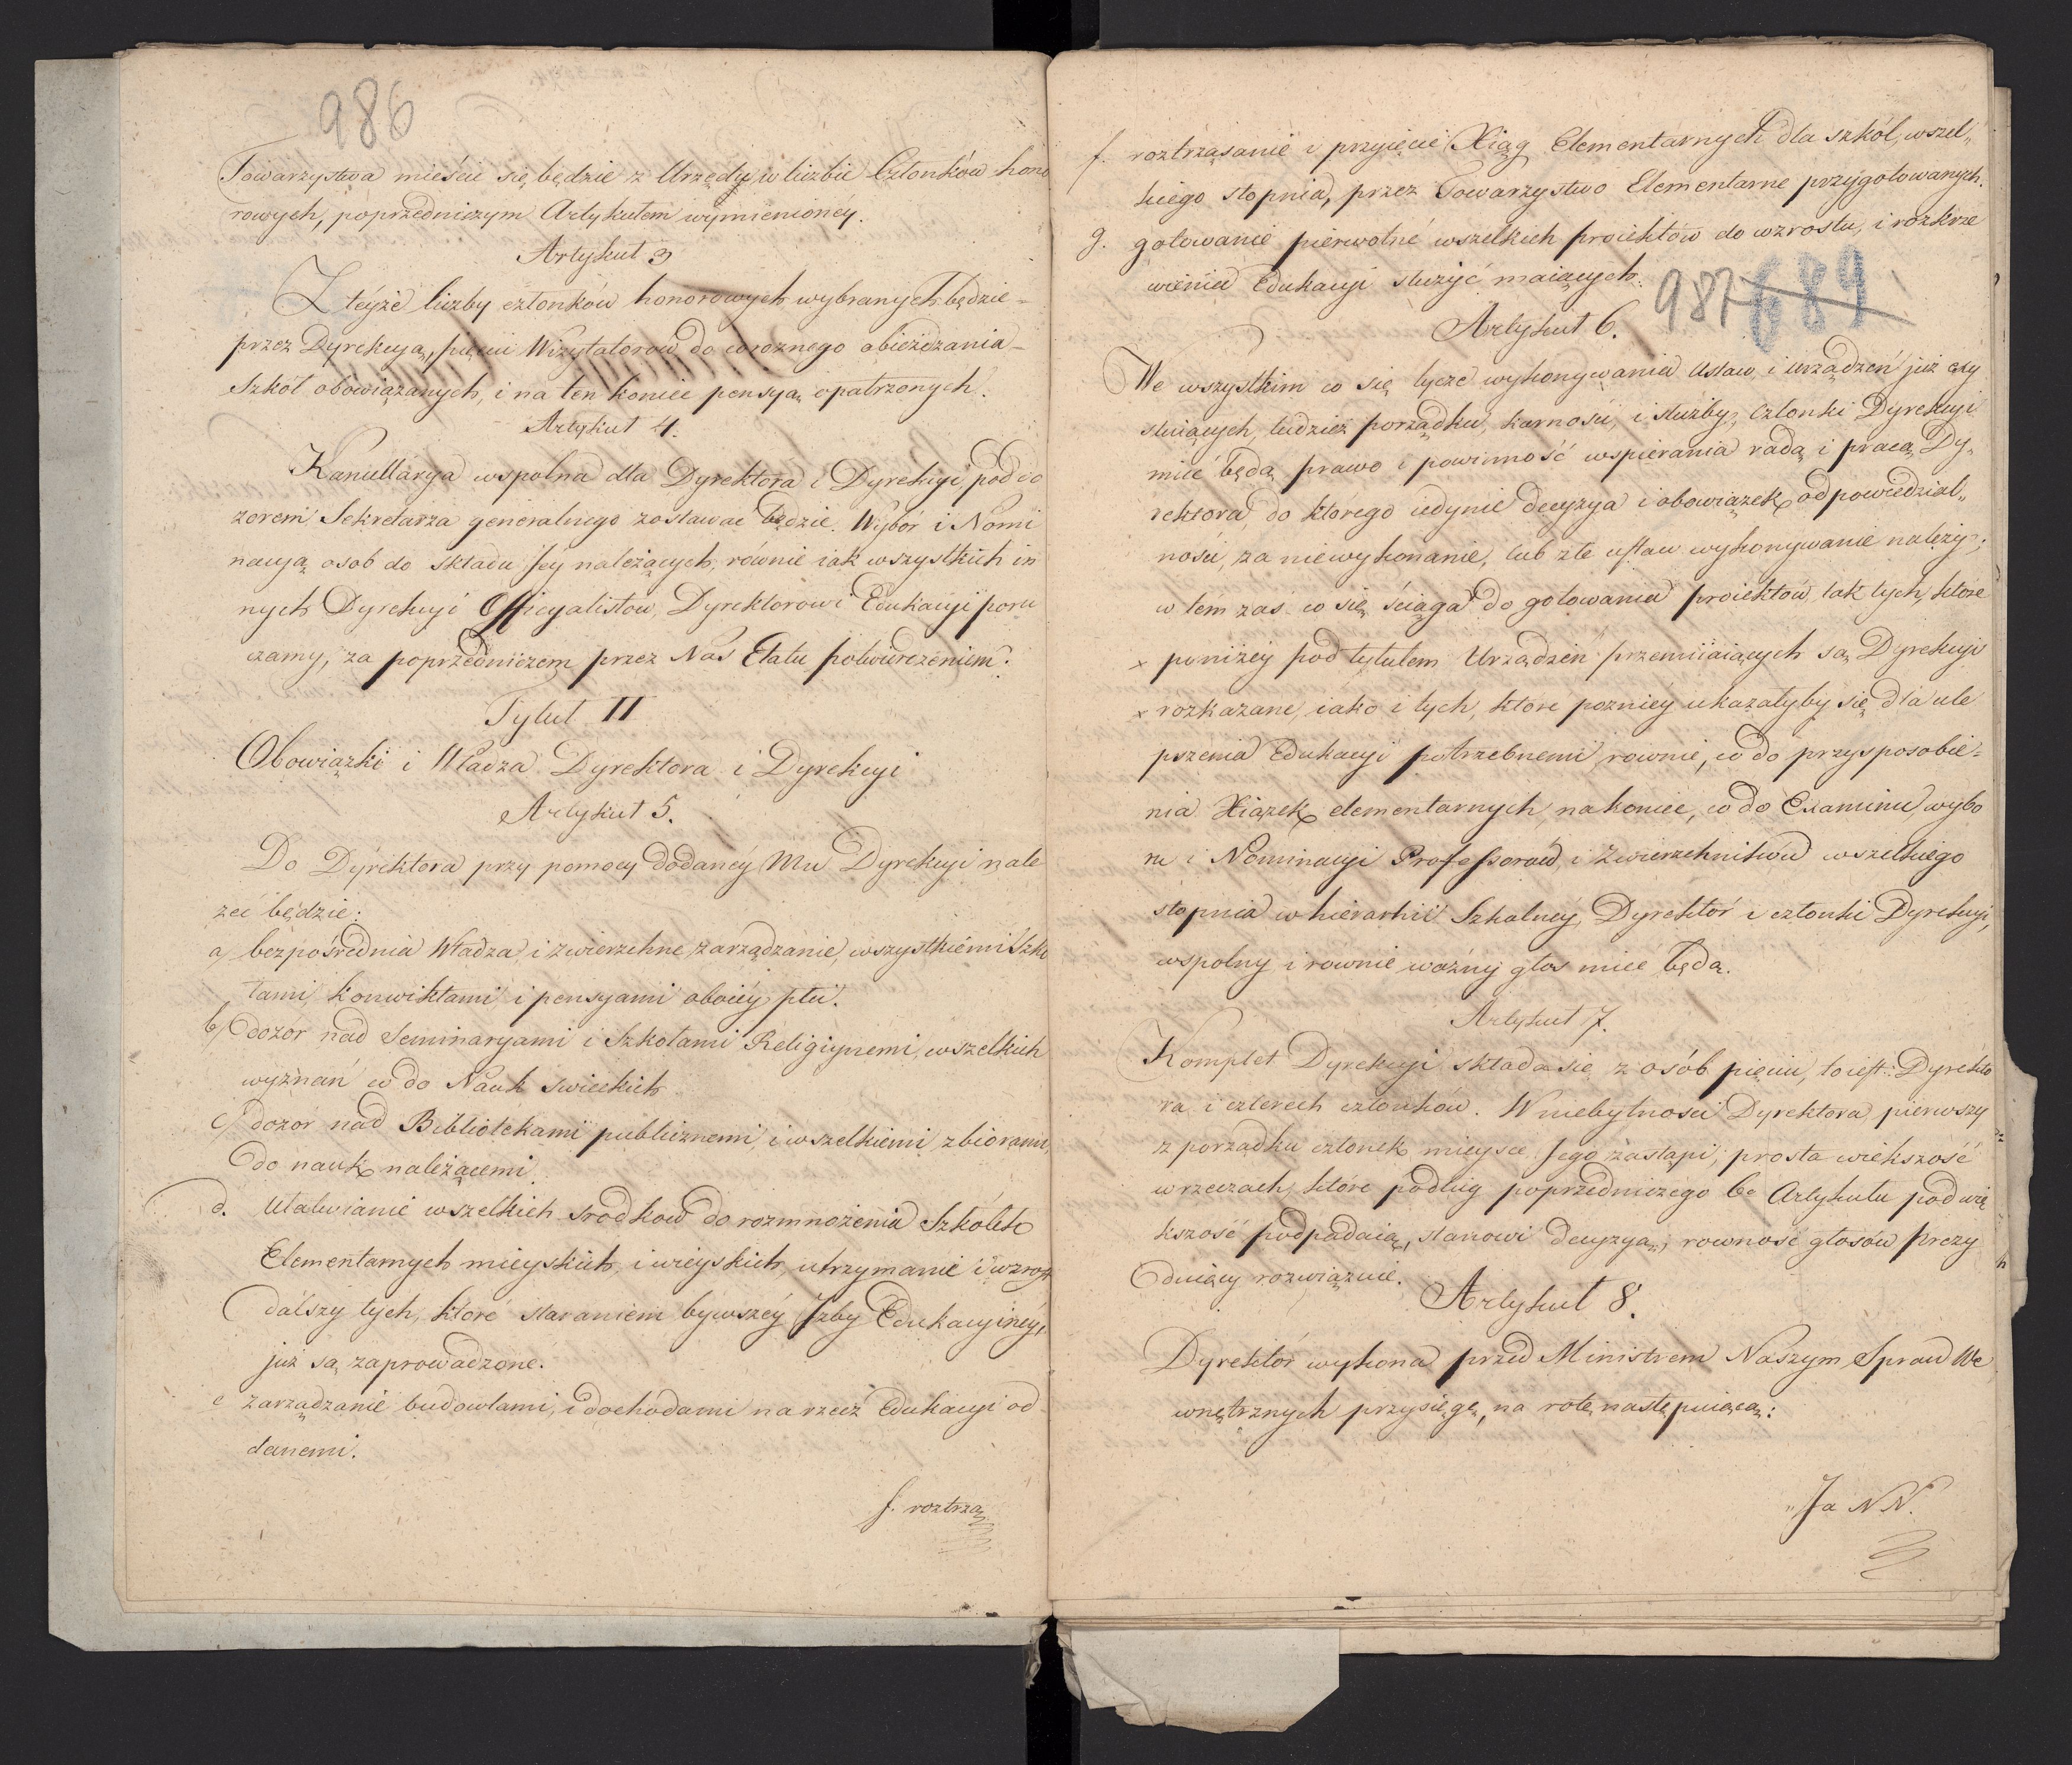 986
Towarzystwa mieścić się będzie z Urzędu w liczbie Członków hono
rowych, poprzedniczym Artykułem wymienioney.
Artykuł 3
Z teyże liczby członków honorowych wybranych będzie
przez Dyrekcyą, pięciu Wizytatorow do corocznego obieżdzania
Szkół obowiązanych, i na ten koniec pensyą opatrzonych.
Artykuł 4.
Kancellarya wspolna dla Dyrektora i Dyrekcyi, pod do
zorem Sekretarza generalnego zostawać będzie. Wybór i Nomi
nacyą osob do składu Jey należących, równie iak wszystkich in
nych Dyrekcyi Officyalistow, Dyrektorowi Edukacyi poru
czamy, za poprzedniczem przez Nas Etatu potwierdzeniem.
Tytuł II
Obowiązki i Władza Dyrektora i Dyrekcyi
Artykuł 5.
Do Dyrektora przy pomocy dodaney Mu Dyrekcyi nale
żeć będzie:
a) bezpośrednia Władza i zwierzchne zarządzanie, wszystkiemi Szko
łami, konwiktami i pensyami oboiey płci.
b) dozór nad Seminaryami i Szkołami Religiynemi, wszelkich
wyznań co do Nauk swieckich
c) dozór nad Bibliotekami publicznemi, i wszelkiemi zbiorami,
do nauk należącemi.
d. ułatwianie wszelkich srodkow do rozmnożenia Szkółek
Elementarnych mieyskich, i wieyskich, utrzymanie i wzrost
dalszy tych, które staraniem bywszey Izby Edukacyiney,
już są zaprowadzone.
e zarządzanie budowlami, i dochodami na rzecz Edukacyi od
danemi.
f. roztrzą
f. roztrząsanie i przyięcie Xiąg Elementarnych dla szkół, wszel„
kiego stopnia, przez Towarzystwo Elementarne przygotowanych.
g. gotowanie pierwotne wszelkich proiektów do wzrostu, i rozkrze
wienia Edukacyi służyć maiących.
987 689
Artykuł 6.
We wszystkim co się tycze wykonywania Ustaw, i urządzeń już exy
stuiących, tudzież porządku, karności, i służby, Członki Dyrekcyi
mieć będą prawo i powinność wspierania radą i pracą Dy„
rektora, do którego iedynie decyzya i obowiązek odpowiedzial„
ności, za niewykonanie, lub złe ustaw wykonywanie należy;
w tem zaś co się ściąga do gotowania proiektów, tak tych, które
x poniżey pod tytułem Urządzeń przemiiaiących są Dyrekcyi
x rozkazane, iako i tych, które pozniey ukazałyby się dla ule
pszenia Edukacyi potrzebnemi, rownie, co do przysposobie=
nia Xiążek elementarnych, nakoniec, co do Examinu, wybo
ru i Nominacyi Professorów, i Zwierzchnikow wszelkiego
stopnia w hierarhii Szkolney, Dyrektór i członki Dyrekcyi,
wspolny i rownie ważny głos mieć będą.
Artykuł 7.
Komplet Dyrekcyi składa się z osób pięciu, to iest: Dyrekto
ra i czterech członków. W niebytności Dyrektora, pierwszy
z porządku członek mieysce Jego zastąpi, prosta większość
w rzeczach, które podług poprzedniczego 6o Artykułu pod wię
kszość podpadaią, stanowi decyzyą; rowność głosów Prezy
duiący rozwiązuie.
Artykuł 8.
Dyrektór wykona przed Ministrem Naszym Spraw We
wnętrznych przysięgę, na rotę następuiącą:
„Ja N N.